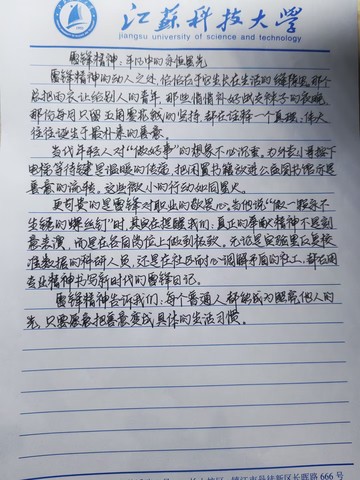 江苏科技大学
jiangsu university of science and technology
雷锋精神：平凡中的永恒星光
雷锋精神的动人之处，恰恰在于它生长在生活的缝隙里。那个
总把雨衣让给别人的青年，那些悄悄补好战友袜子的夜晚，
那份每月只留五角零花钱的坚持，都在诠释一个真理：伟大
往往诞生于最朴素的善意。
当代年轻人对"做好事"的想象不必沉重。为外卖小哥按下
电梯等待键是温暖的传递，把闲置书籍放进公益图书馆亦是
善意的流转，这些微小的行动如同星火。
更可贵的是雷锋对职业的敬畏心。当他说"做一颗永不
生锈的螺丝钉"时，其实在提醒我们：真正的奉献精神不是刻
意表演，而是在各自岗位上做到极致。无论是实验室里反复校
准数据的科研人员，还是在社区耐心调解矛盾的社工，都在用
专业精神书写新时代的雷锋日记。
雷锋精神告诉我们：每个普通人都能成为照亮他人的
光，只要愿意把善意变成具体的生活习惯。
镇江市丹徒新区长晖路 666 号